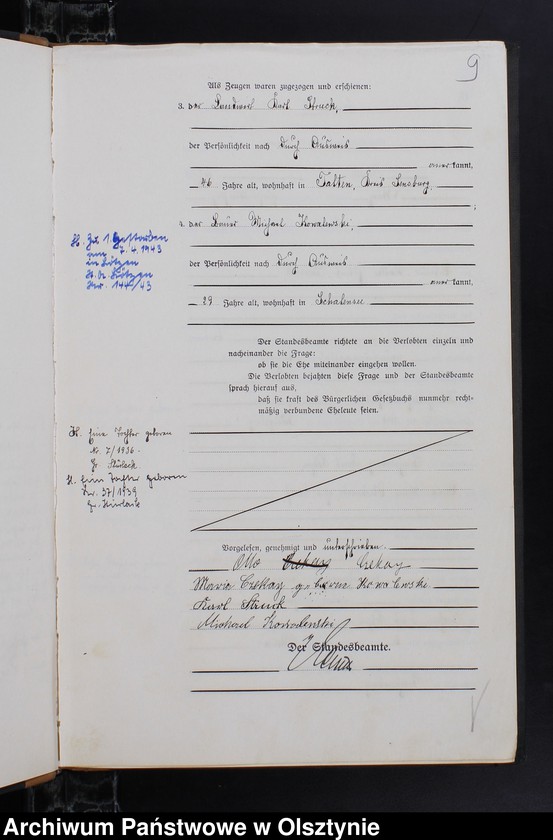 9
Als Zeugen waren zugezogen und erschienen:
3. der Landwirt Karl Struck,
der Persönlichkeit nach durch Ausweis
kannt,
46 Jahre alt, wohnhaft in Talten, Kreis Sensburg,
4. der Bauer Michael Kowalewski,
der Persönlichkeit nach durch Ausweis
kannt,
29 Jahre alt, wohnhaft in Schalensee.
H. Zu 1. Gestorben
am 7.4.1943
in Lötzen
St.A. Lötzen
Nr. 144/43
Der Standesbeamte richtete an die Verlobten einzeln und
nacheinander die Frage:
ob sie die Ehe miteinander eingehen wollen.
Die Verlobten bejahten diese Frage und der Standesbeamte
sprach hierauf aus,
daß sie kraft des Bürgerlichen Gesetzbuchs nunmehr recht-
mäßig verbundene Eheleute seien.
H. Eine Tochter geboren
Nr. 7/1936
H. Eine Tochter geboren
Nr. 37/1939
Vorgelesen, genehmigt und unterschrieben.
Otto Czekay
Marie Czekay geborene Kowalewski
Karl Struck
Michael Kowalewski
Der Standesbeamte.
Archiwum Państwowe w Olsztynie